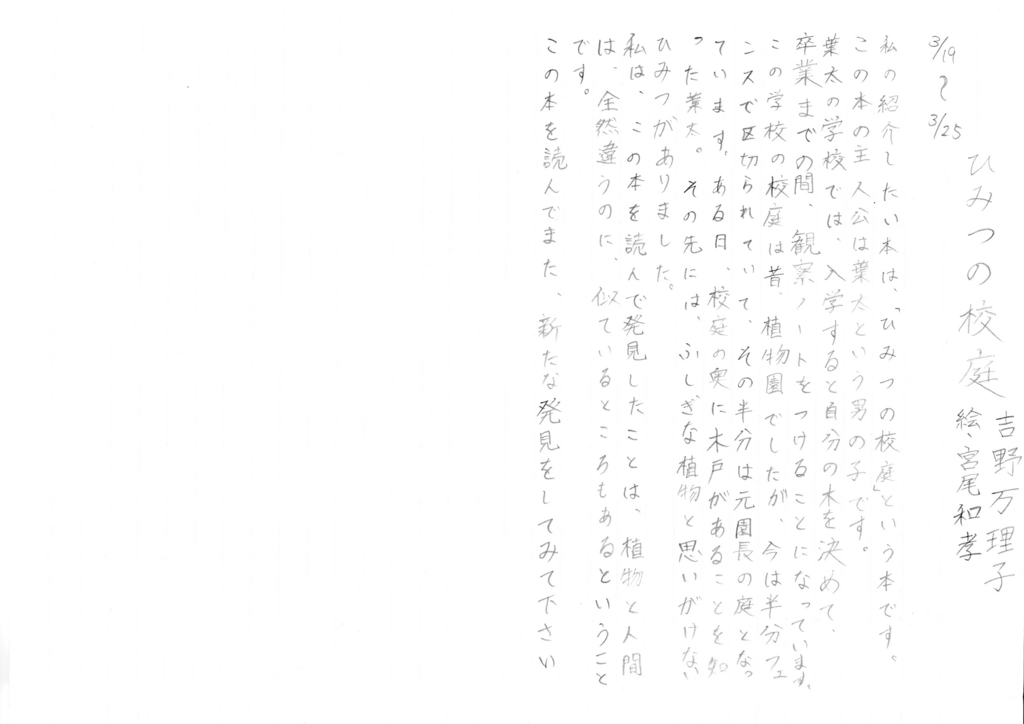 ひみつの校庭
吉野万理子
絵・宮尾和孝
3/19〜3/25
私の紹介したい本は、「ひみつの校庭」という本です。
この本の主人公は葉太という男の子です。
葉太の学校では、入学すると自分の木を決めて、
卒業までの間、観察ノートをつけることになっています。
この学校の校庭は昔、植物園でしたが、今は半分フェ
ンスで区切られていて、その半分は元園長の庭となっ
ています。ある日、校庭の奥に木戸があることを知
った葉太。その先には、ふしぎな植物と思いがけない
ひみつがありました。
私は、この本を読んで発見したことは、植物と人間
は、全然違うのに、似ているところもあるということ
です。
この本を読んでまた、新たな発見をしてみて下さい